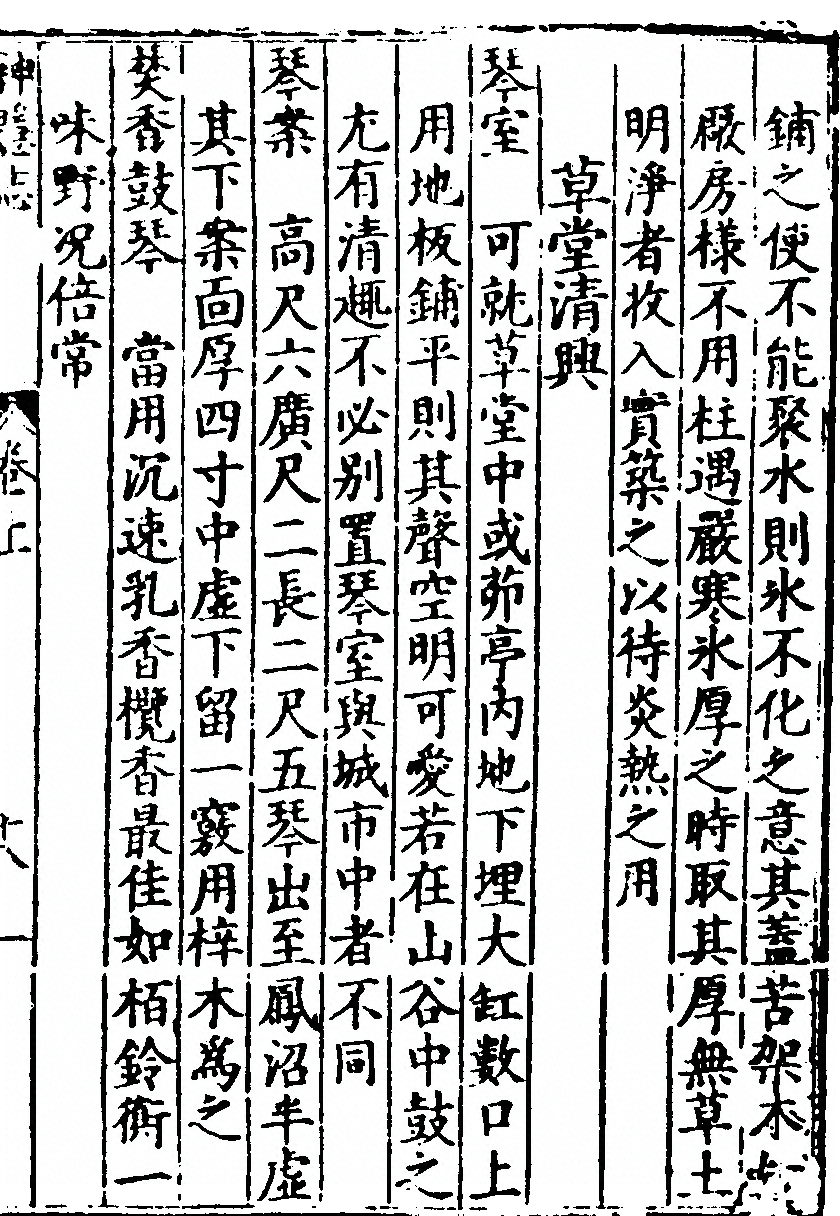 鋪之使不能聚水則氷不化之意其蓋苫架木如
厫房樣不用柱遇嚴寒氷厚之時取其厚無草土
明淨者收入實築之以待炎熱之用
草堂清興
琴室　可就草堂中或茆亭內地下埋大缸數口上
用地板鋪平則其聲空明可愛若在山谷中鼓之
尤有清趣不必别置琴室與城市中者不同
琴案　高尺六廣尺二長二尺五琴出至鳳沼半虛
其下案面厚四寸中虛下留一竅用梓木爲之
焚香鼓琴　當用沉速乳香欖香最佳如栢鈴衠一
味野况倍常
卷上
十八